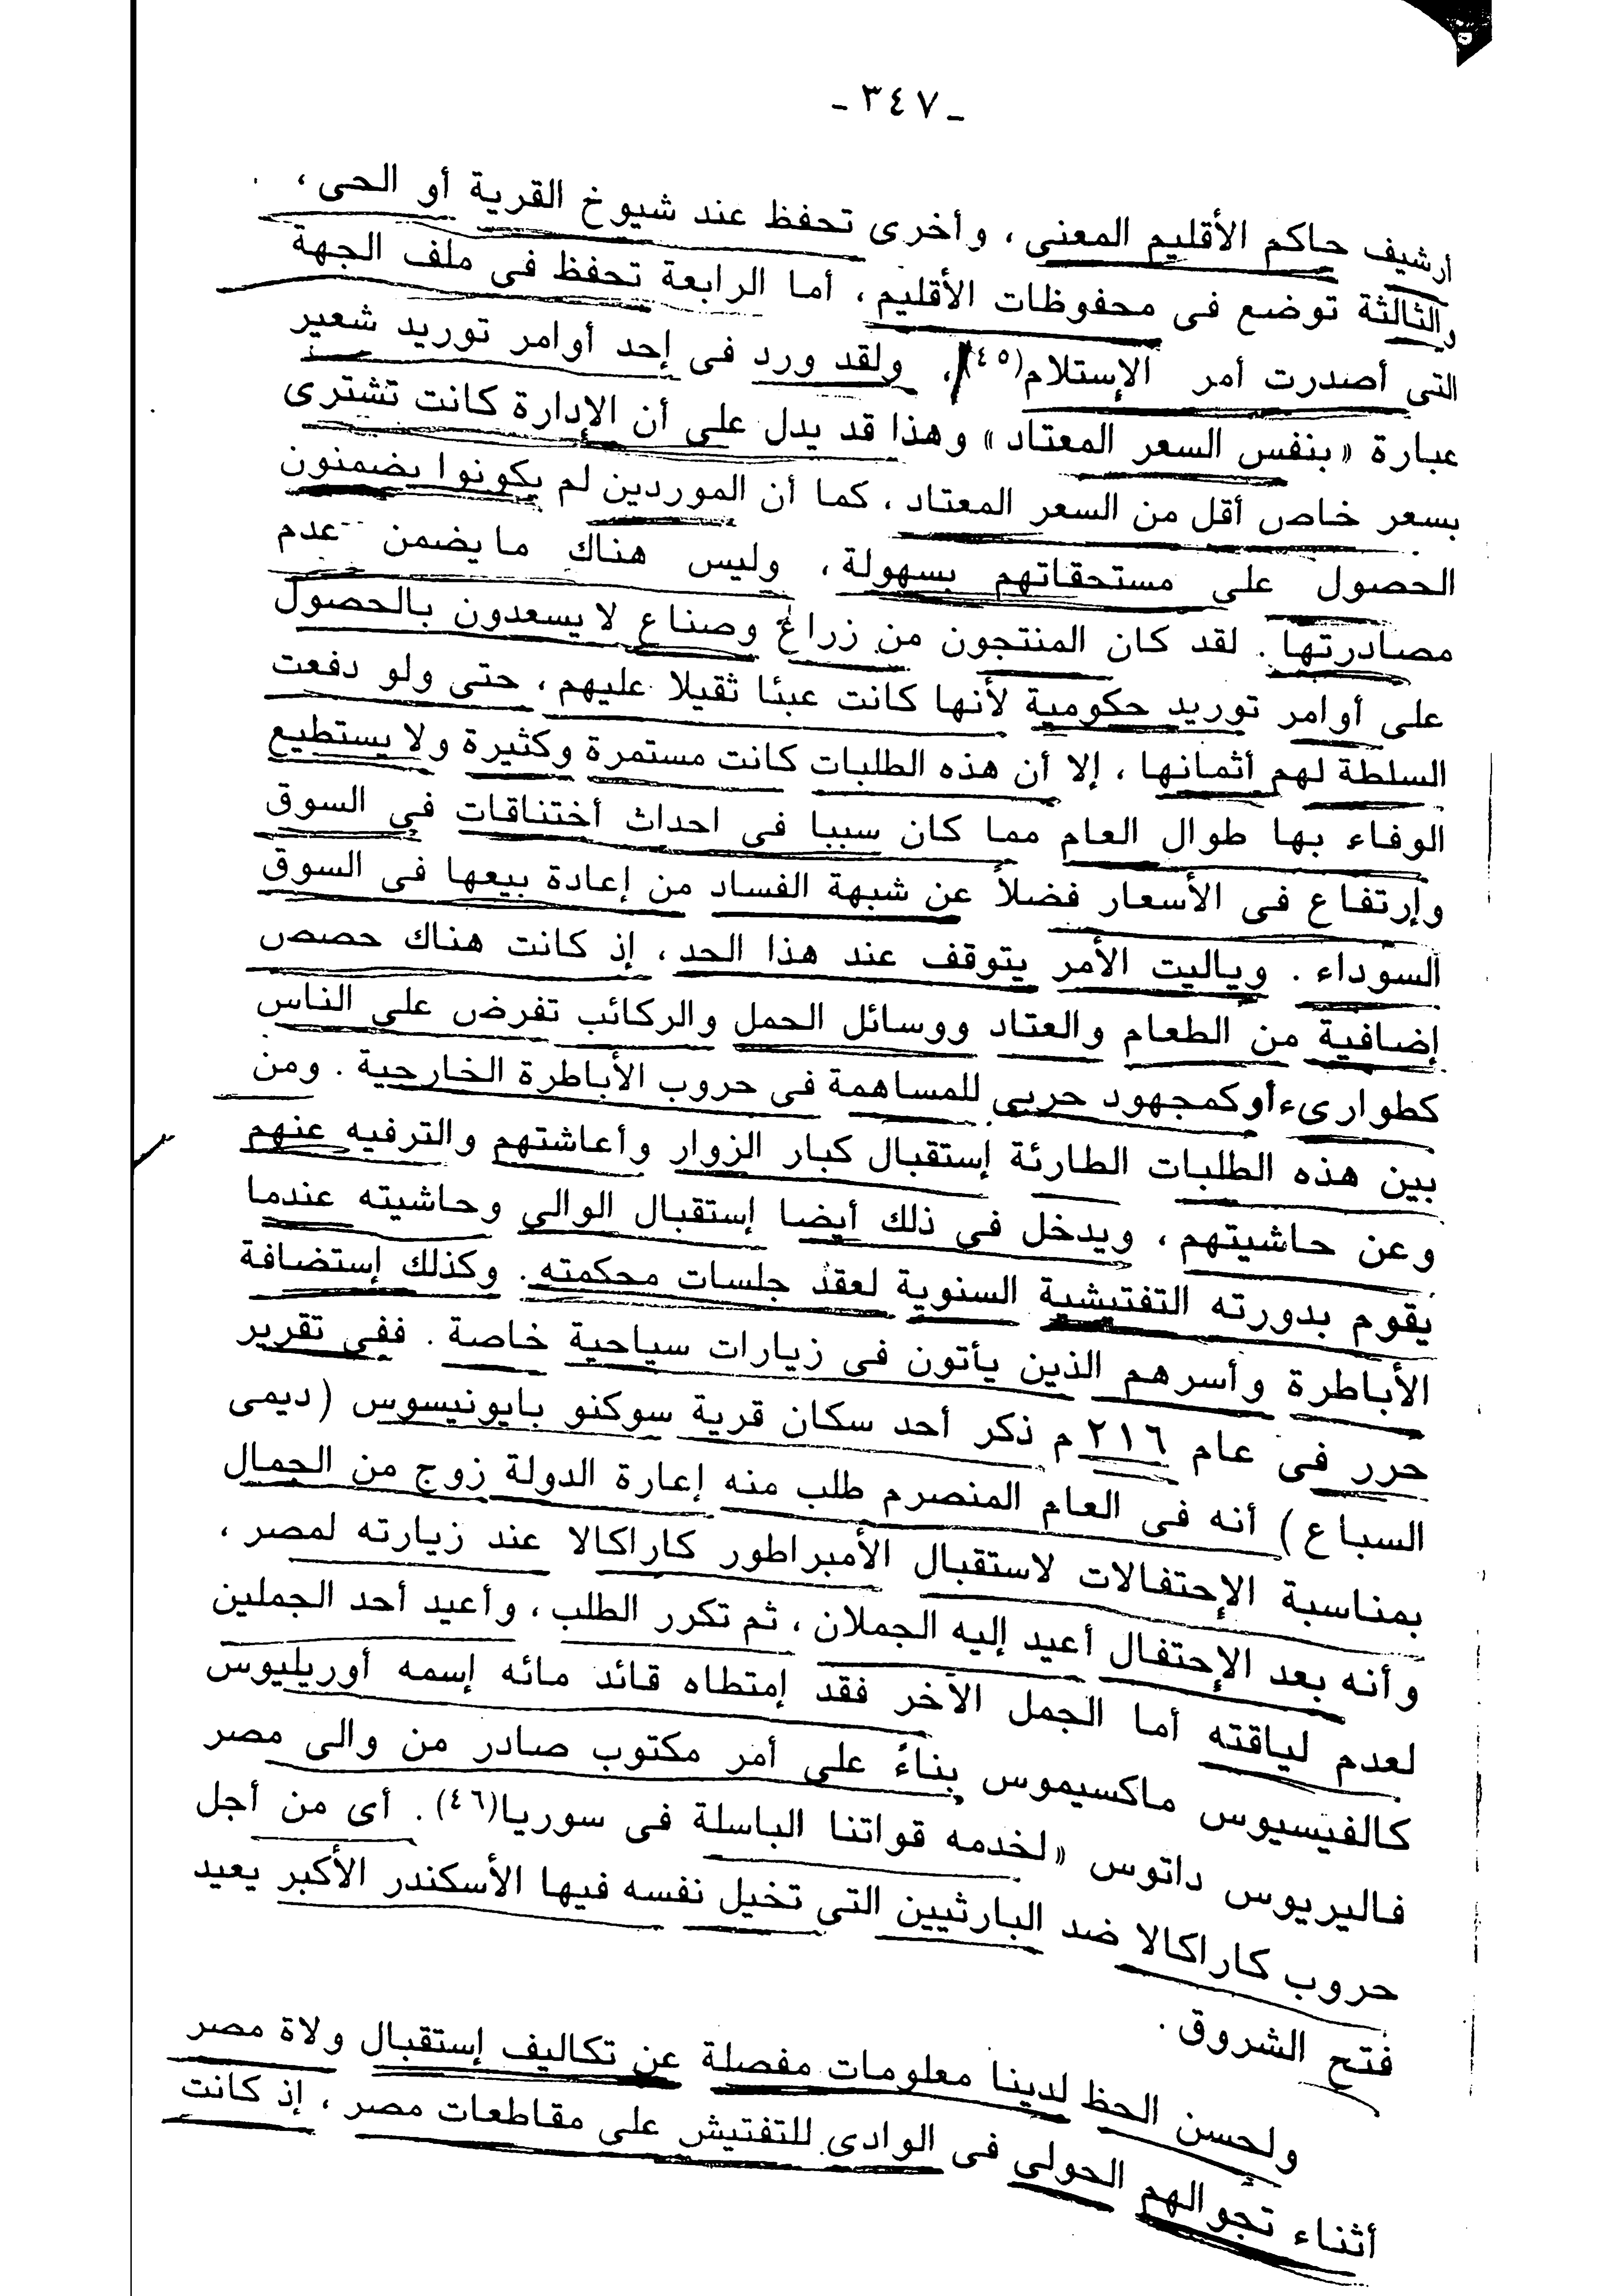 ـ ٣٤٧ ـ
أرشيف حاكم الأقليم المعنى ، وأخرى تحفظ عند شيوخ القرية أو الحى ،
والثالثة توضع فى محفوظات الأقليم ، أما الرابعة تحفظ فى ملف الجهة
التى أصدرت أمر الإستلام(٤٥) ، ولقد ورد فى إحد أوامر توريد شعير
عبارة « بنفس السعر المعتاد » وهذا قد يدل على أن الإدارة كانت تشترى
بسعر خاص أقل من السعر المعتاد ، كما أن الموردين لم يكونوا يضمنون
الحصول على مستحقاتهم بسهولة ، وليس هناك مايضمن عدم
مصادرتها . لقد كان المنتجون من زراع وصناع لا يسعدون بالحصول
على أوامر توريد حكومية لأنها كانت عبئا ثقيلا عليهم ، حتى ولو دفعت
السلطة لهم أثمانها ، إلا أن هذه الطلبات كانت مستمرة وكثيرة ولا يستطيع
الوفاء بها طوال العام مما كان سببا فى احداث أختناقات فى السوق
وإرتفاع فى الأسعار فضلاً عن شبهة الفساد من إعادة بيعها فى السوق
السوداء . وياليت الأمر يتوقف عند هذا الحد ، إذ كانت هناك حصص
إضافية من الطعام والعتاد ووسائل الحمل والركائب تفرض على الناس
كطوارىء أو كمجهود حربى للمساهمة فى حروب الأباطرة الخارجية . ومن
بين هذه الطلبات الطارئة إستقبال كبار الزوار وأعاشتهم والترفيه عنهم
وعن حاشيتهم ، ويدخل فى ذلك أيضا إستقبال الوالى وحاشيته عندما
يقوم بدورته التفتيشية السنوية لعقد جلسات محكمته . وكذلك إستضافة
الأباطرة وأسرهم الذين يأتون فى زيارات سياحية خاصة . ففى تقرير
حرر فى عام ٢١٦ م ذكر أحد سكان قرية سوكنو بايونيسوس ( ديمى
السباع ) أنه فى العام المنصرم طلب منه إعارة الدولة زوج من الجمال
بمناسبة الإحتفالات لاستقبال الأمبراطور كاراكالا عند زيارته لمصر ،
وأنه بعد الإحتفال أعيد إليه الجملان ، ثم تكرر الطلب ، وأعيد أحد الجملين
لعدم لياقته أما الجمل الآخر فقد إمتطاه قائد مائه إسمه أوريليوس
كالفيسيوس ماكسيموس بناءً على أمر مكتوب صادر من والى مصر
فاليريوس داتوس « لخدمه قواتنا الباسلة فى سوريا(٤٦) . أى من أجل
حروب كاراكالا ضد البارثيين التى تخيل نفسه فيها الأسكندر الأكبر يعيد
فتح الشروق .
ولحسن الحظ لدينا معلومات مفصلة عن تكاليف إستقبال ولاة مصر
أثناء تجوالهم الحولى فى الوادى للتفتيش على مقاطعات مصر ، إذ كانت